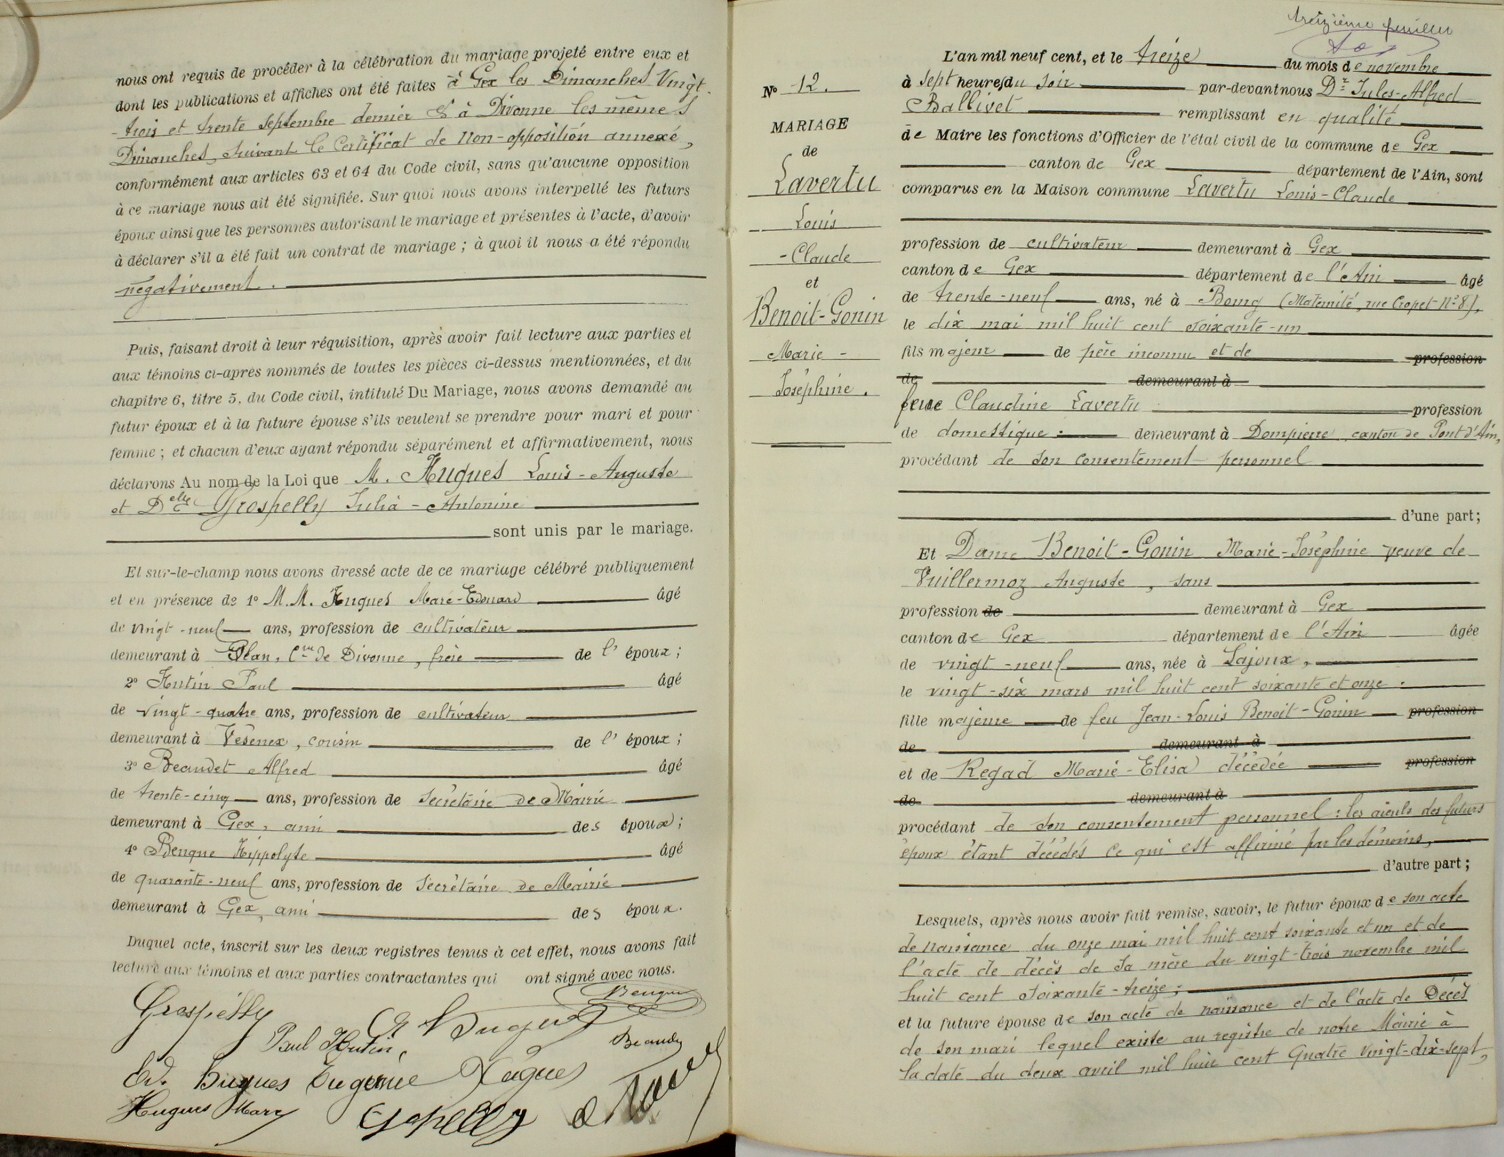 nous ont requis de procéder à la célébration du mariage projeté entre eux et
dont les publications et affiches ont été faites à Gex les Dimanches Vingt
-trois et trente Septembre dernier & à Divonne les mêmes
Dimanches, suivant le Certificat de Non-opposition annexé,
conformément aux articles 63 et 64 du Code civil, sans qu'aucune opposition
à ce mariage nous ait été signifiée. Sur quoi nous avons interpellé les futurs
époux ainsi que les personnes autorisant le mariage et présentes à l'acte, d'avoir
à déclarer s'il a été fait un contrat de mariage ; à quoi il nous a été répondu
négativement.
Puis, faisant droit à leur réquisition, après avoir fait lecture aux parties et
aux témoins ci-après nommés de toutes les pièces ci-dessus mentionnées, et du
chapitre 6, titre 5, du Code civil, intitulé Du Mariage, nous avons demandé au
futur époux et à la future épouse s'ils veulent se prendre pour mari et pour
femme ; et chacun d'eux ayant répondu séparément et affirmativement, nous
déclarons Au nom de la Loi que M. Hugues Louis-Auguste
et Delle Grospelly Julia-Antonine
sont unis par le mariage.
Et sur-le-champ nous avons dressé acte de ce mariage célébré publiquement
et en présence de 1° M.M. Hugues Marc-Edouard âgé
de vingt-neuf ans, profession de cultivateur
demeurant à Plan, Cne de Divonne, frère de l'époux ;
2° Hutin Paul âgé
de vingt-quatre ans, profession de cultivateur
demeurant à Vesenex, cousin de l'époux ;
3° Beaudet Alfred âgé
de trente-cinq ans, profession de Secrétaire de Mairie
demeurant à Gex, ami des époux ;
4° Benque Hippolyte âgé
de quarante-neuf ans, profession de Secrétaire de Mairie
demeurant à Gex, ami des époux.
Duquel acte, inscrit sur les deux registres tenus à cet effet, nous avons fait
lecture aux témoins et aux parties contractantes qui ont signé avec nous.
Grospelly
Benque
Paul Hutin,
Hugues Eugénie Hugues
Hugues Marc
treizième feuillet
N° 12.
MARIAGE
de
Lavertu
Louis
-Claude
et
Benoit-Gonin
Marie-
Joséphine.
L'an mil neuf cent, et le treize du mois de novembre
à sept heures du soir par-devant nous Dr Jules-Alfred
Ballivet remplissant en qualité
de Maire les fonctions d'Officier de l'état civil de la commune de Gex
canton de Gex département de l'Ain, sont
comparus en la Maison commune Lavertu Louis-Claude
profession de cultivateur demeurant à Gex
canton de Gex département de l'Ain âgé
de trente-neuf ans, né à Bourg (Maternité, rue Cropet N° 8),
le dix mai mil huit cent soixante-un
fils majeur de père inconnu et de profession
de demeurant à
feue Claudine Lavertu profession
de domestique demeurant à Dompierre, canton de Pont d'Ain,
procédant de son consentement personnel
d'une part ;
Et Dame Benoit-Gonin Marie-Joséphine veuve de
Vuillermoz Auguste, sans
profession de demeurant à Gex
canton de Gex département de l'Ain âgée
de vingt-neuf ans, née à Lajoux,
le vingt-six mars mil huit cent soixante et onze
fille majeure de feu Jean-Louis Benoit-Gonin profession
de demeurant à
et de Regad Marie-Elisa décédée profession
de demeurant à
procédant de son consentement personnel : les aïeuls des futurs
époux étant décédés ce qui est affirmé par les témoins,
d'autre part ;
Lesquels, après nous avoir fait remise, savoir, le futur époux de son acte
de naissance du onze mai mil huit cent soixante et un et de
l'acte de décès de sa mère du vingt-trois novembre mil
huit cent soixante-treize ;
et la future épouse de son acte de naissance et de l'acte de Décès
de son mari lequel existe au registre de notre Mairie à
la date du deux avril mil huit cent quatre vingt-dix-sept,